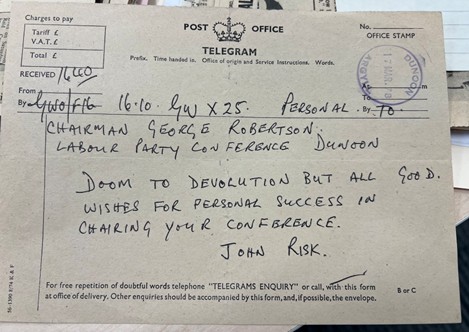 Charges to pay
Tariff £
V.A.T. £
Total £
RECEIVED 1640
POST OFFICE
TELEGRAM
Prefix. Time handed in. Office of origin and Service Instructions. Words.
No.
OFFICE STAMP
DUNOON
ARGYLL
From
By GWO/F16 16.10. GW X 25. PERSONAL. TO.
At m
To
By
CHAIRMAN GEORGE ROBERTSON.
LABOUR PARTY CONFERENCE DUNOON
DOOM TO DEVOLUTION BUT ALL GOOD.
WISHES FOR PERSONAL SUCCESS IN
CHAIRING YOUR CONFERENCE.
JOHN RISK.
For free repetition of doubtful words telephone "TELEGRAMS ENQUIRY" or call, with this form
at office of delivery. Other enquiries should be accompanied by this form, and, if possible, the envelope.
B or C